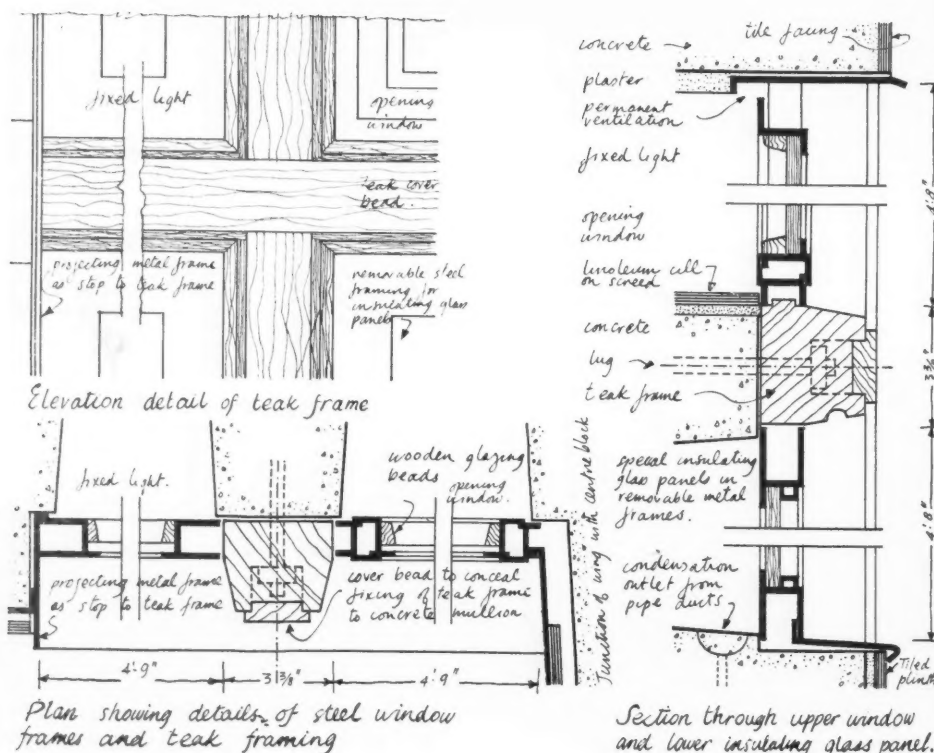 fixed light
opening
window
teak cover
bead.
projecting metal frame
as stop to teak frame
removable steel
framing for
insulating glass
panels
Elevation detail of teak frame
fixed light.
wooden glazing
beads
opening
window.
projecting metal frame
as stop to teak frame
cover bead to conceal
fixing of teak frame
to concrete mullion
Junction of wing with centre block
4'·9"
3 1 3/8"
4'·9"
Plan showing details of steel window
frames and teak framing
concrete
tile facing
plaster
permanent
ventilation
fixed light
opening
window
linoleum cill
on screed
concrete
lug
teak frame
special insulating
glass panels in
removable metal
frames.
condensation
outlet from
pipe ducts
4'·8"
4'·8"
Tiled
plinth
Section through upper window
and lower insulating glass panel.